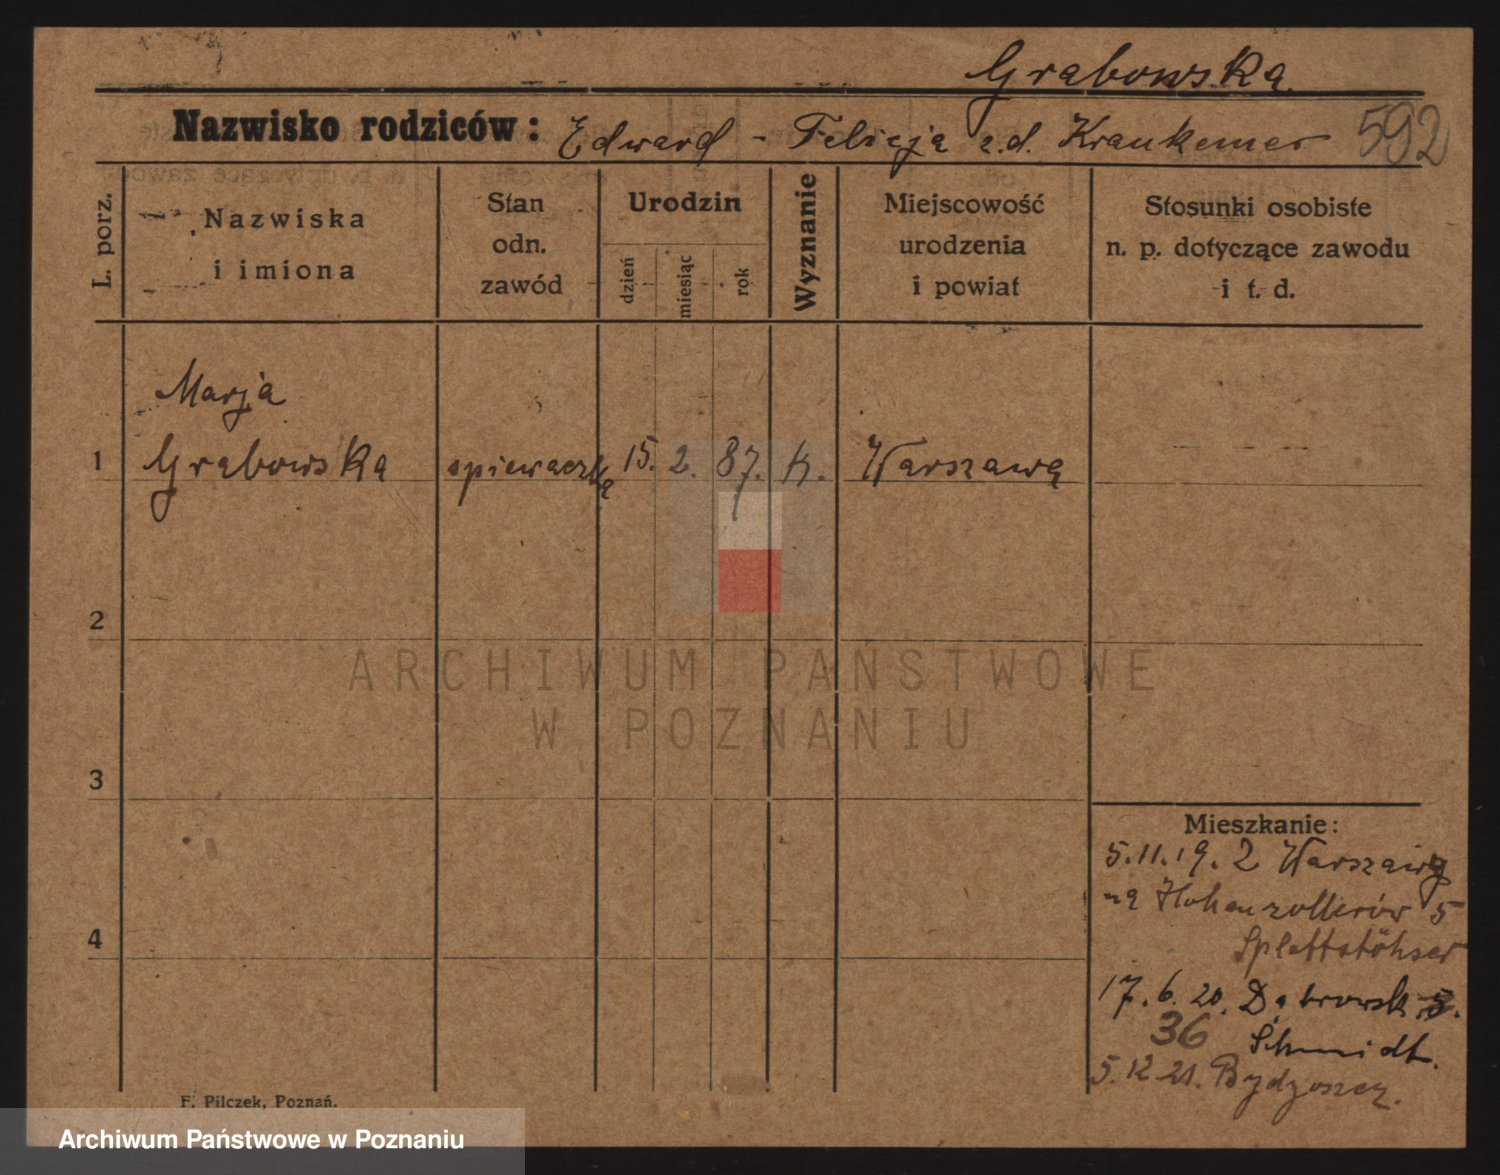 Grabowska
592
Nazwisko rodziców: Edward - Felicja z.d. Kraukemer
L. porz.
Nazwiska
i imiona
Stan
odn.
zawód
Urodzin
dzień
miesiąc
rok
Wyznanie
Miejscowość
urodzenia
i powiat
Stosunki osobiste
n. p. dotyczące zawodu
i t. d.
Marja
1 Grabowska spiewaczka 15. 2. 87. K. Warszawa
2
ARCHIWUM PAŃSTWOWE
W POZNANIU
3
Mieszkanie:
5.11.19. Z Warszawy
na Hohenzollerów 5
Splettstöhser
4
17.6.20. Dąbrowsk. 5.
36 Schmidt.
5.12 21. Bydgoszcz.
F. Pilczek, Poznań.
Archiwum Państwowe w Poznaniu